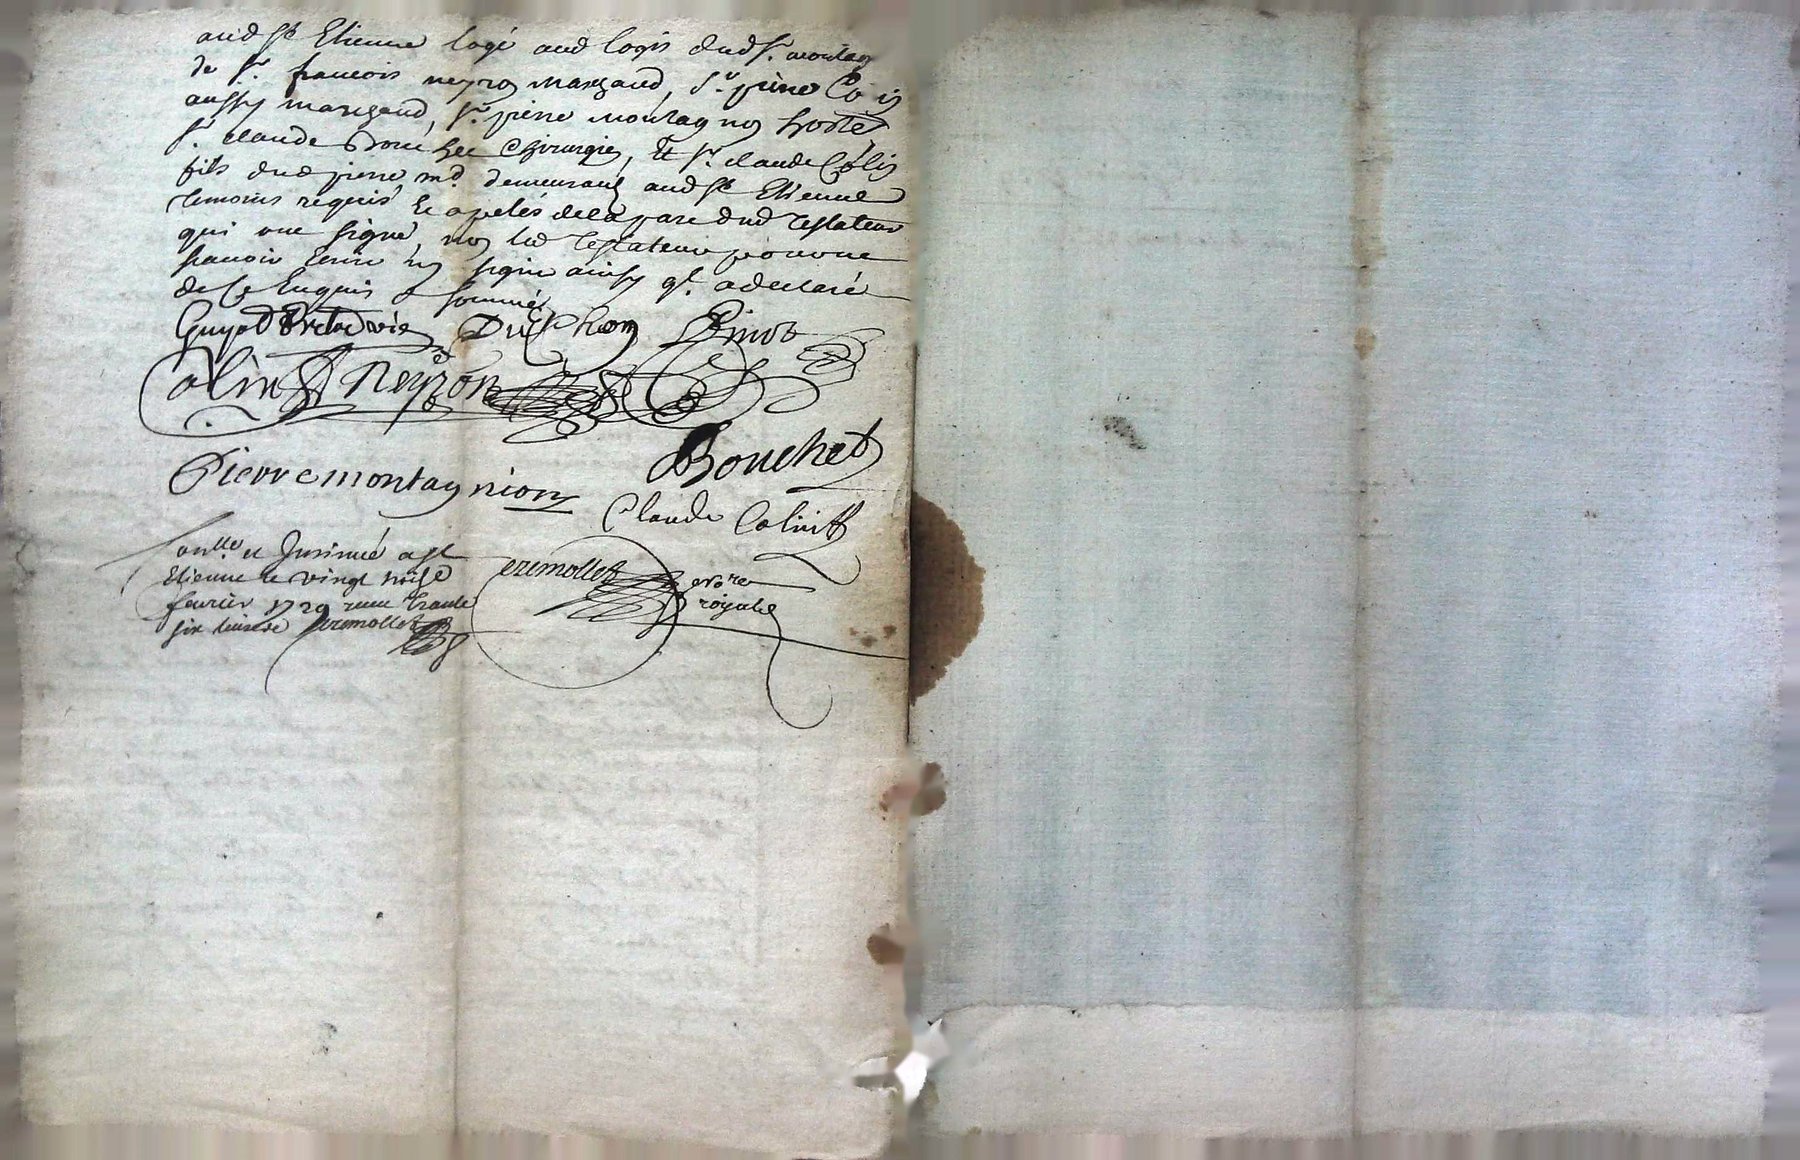 aud St Etienne logé aud logis dud Sr. montag
de Sr. francois neyron marchand, Sr. pierre Colin
aussy marchand, Sr. pierre montagnon hoste
Sr. claude Bouchet Chirurgien, Et Sr. claude Colin
fils dud pierre md. demeurant aud St Etienne
temoins requis Et apelés de la part dud testateur
qui ont signé, non led testateur pour ne
scavoir Ecrire ny signer ainsy ql. a declaré
de ce Enquis & sommé
Guyot Pinot
Colin Neyron
Bouchet
Pierre montagnion
Claude Colin
Conllé et Insinué a St
Etienne le vingt
fevrier 1729
six
royale